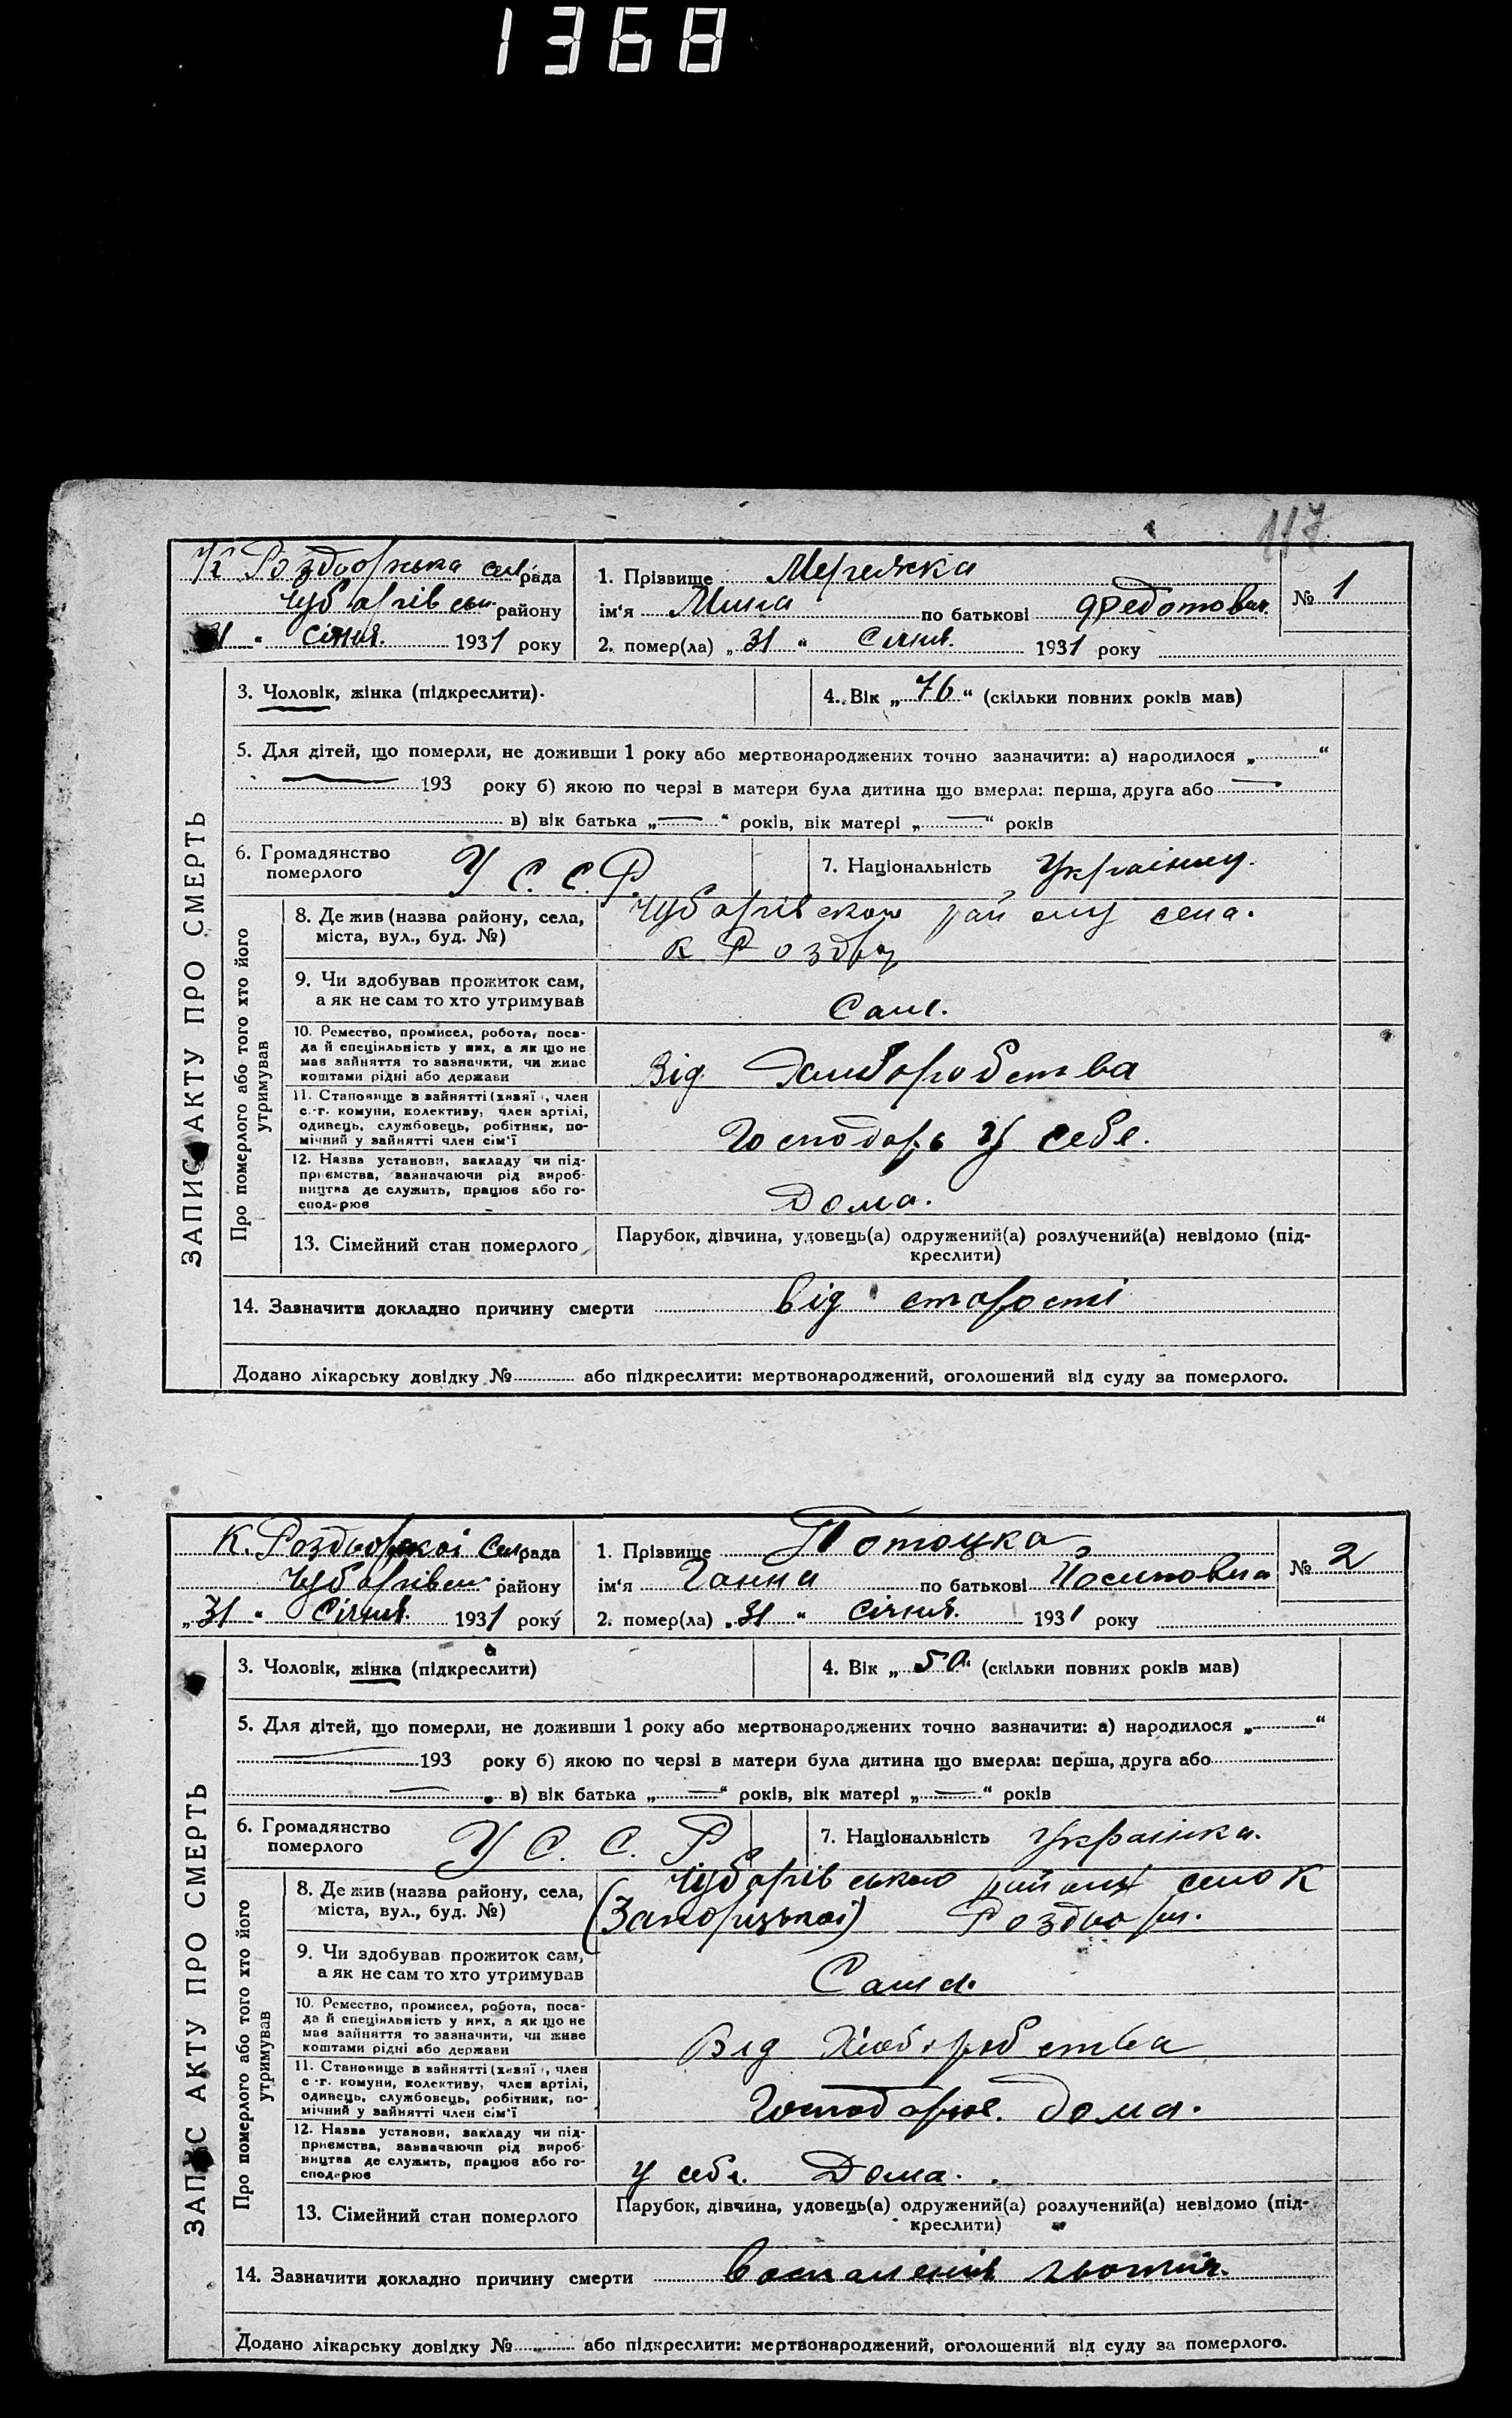 1368
117
К Роздорська сельрада
Чубарівськ. району
„31" Січня. 1931 року
1. Прізвище Мережка
ім'я Мина по батькові Федотович.
№ 1
2. помер(ла) „31" Січня. 1931 року
3. Чоловік, жінка (підкреслити).
4. Вік „76" (скільки повних років мав)
5. Для дітей, що померли, не доживши 1 року або мертвонароджених точно зазначити: а) народилося „ "
193 року б) якою по черзі в матери була дитина що вмерла: перша, друга або
в) вік батька „—" років, вік матері „—" років
6. Громадянство
померлого
У С. С. Р.
7. Національність Українець.
ЗАПИС АКТУ ПРО СМЕРТЬ
Про померлого або того хто його
утримував
8. Де жив (назва району, села,
міста, вул., буд. №)
Чубарівского району села.
К Роздор
9. Чи здобував прожиток сам,
а як не сам то хто утримував
Сам.
10. Ремество, промисел, робота, поса-
да й спеціяльність у них, а як що не
мав зайняття то зазначити, чи живе
коштами рідні або держави
Від
11. Становище в зайнятті (хазяї , член
с.-г. комуни, колективу, член артілі,
одинець, службовець, робітник, по-
мічний у зайнятті член сім'ї
Господарь У себе.
12. Назва установи, закладу чи під-
приємства, зазначаючи рід вироб-
ництва де служить, працює або го-
сподарює
Дома.
13. Сімейний стан померлого
Парубок, дівчина, удовець(а) одружений(а) розлучений(а) невідомо (під-
креслити)
14. Зазначити докладно причину смерти Від старості
Додано лікарську довідку № або підкреслити: мертвонароджений, оголошений від суду за померлого.
К. Роздорскої Сельрада
Чубарівськ району
„31" Січня. 1931 року
1. Прізвище Потоцка
ім'я Ганна по батькові Йосиповна
№ 2
2. помер(ла) „31" Січня. 1931 року
3. Чоловік, жінка (підкреслити)
4. Вік „50" (скільки повних років мав)
5. Для дітей, що померли, не доживши 1 року або мертвонароджених точно зазначити: а) народилося „ "
193 року б) якою по черзі в матери була дитина що вмерла: перша, друга або
в) вік батька „—" років, вік матері „—" років
6. Громадянство
померлого
У С. С. Р
7. Національність Українка.
ЗАПИС АКТУ ПРО СМЕРТЬ
Про померлого або того хто його
утримував
8. Де жив (назва району, села,
міста, вул., буд. №)
Чубарівського району село К
(Запорізької) Роздори.
9. Чи здобував прожиток сам,
а як не сам то хто утримував
Сама.
10. Ремество, промисел, робота, поса-
да й спеціяльність у них, а як що не
мав зайняття то зазначити, чи живе
коштами рідні або держави
Від
11. Становище в зайнятті (хазяї , член
с-г. комуни, колективу, член артілі,
одинець, службовець, робітник, по-
мічний у зайнятті член сім'ї
Господарює. Дома.
12. Назва установи, закладу чи під-
приємства, зазначаючи рід вироб-
ництва де служить, працює або го-
сподарює
у себе. Дома.
13. Сімейний стан померлого
Парубок, дівчина, удовець(а) одружений(а) розлучений(а) невідомо (під-
креслити)
14. Зазначити докладно причину смерти
Додано лікарську довідку № або підкреслити: мертвонароджений, оголошений від суду за померлого.